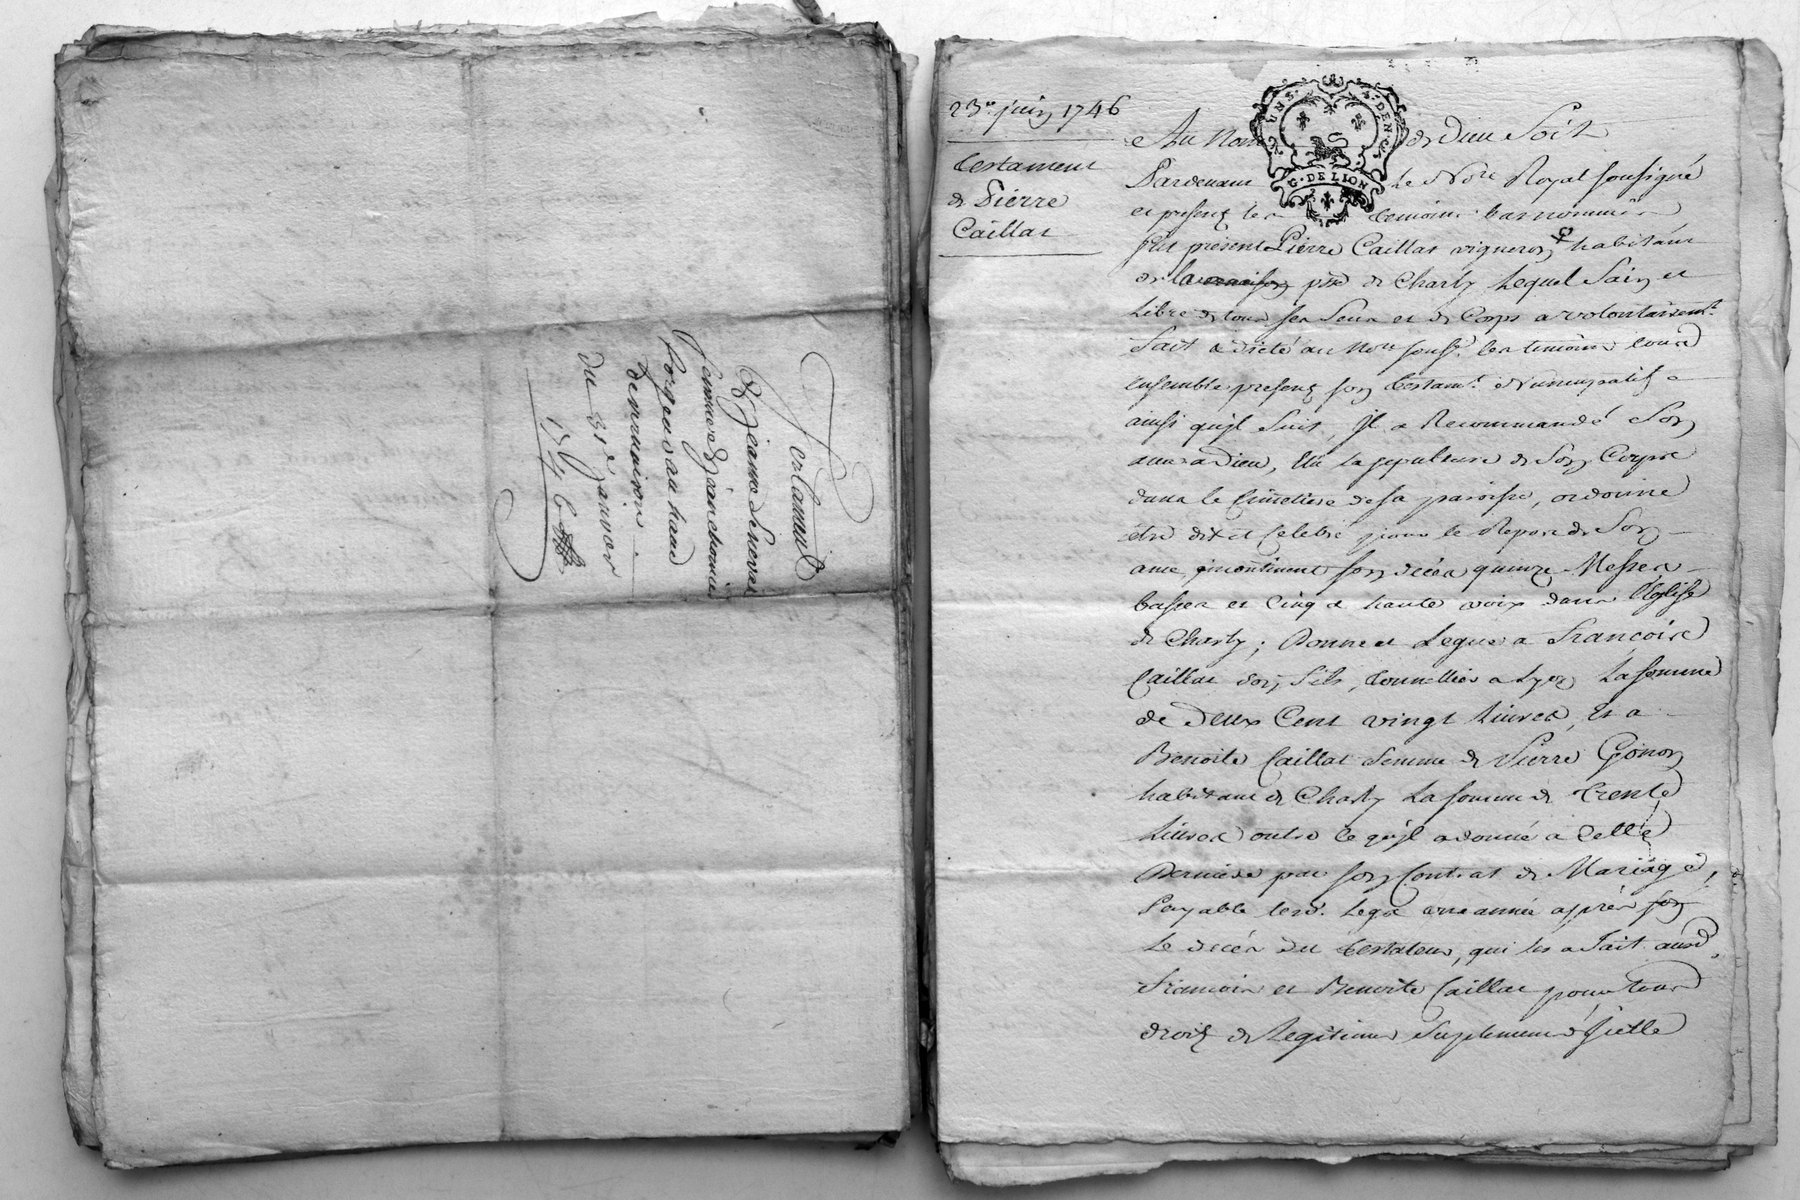 Testament
de jeanne Seneval
femme de jean chomie
forgeur au haut
du 31e janvier
1746
23e juin 1746
Testament
de Pierre
Caillat
UNS. S. DEN.
G. DE LION
Au Nom de Dieu Soit
Pardevant Le Nore Royal soussigné
et presens les temoins bas nommés
fut présent Pierre Caillat vigneron habitant
de la psse de Charly Lequel Sain et
Libre de tous ses Sens et de Corps a volontairemt
fait & dicté au Nore souse les temoins tous
ensemble presens son testamt Nuncupatif
ainsi qu'jl suit, Jl a Recommandé Son
ame a Dieu, Elu la sepulture de Son Corps
dans le Cimetiere de sa paroisse, ordonne
etre dit et Celebré pour le Repos de Son
ame, jncontinent son decés quinze Messes
basses et Cinq a haute voix dans l'Eglise
de Charly; Donne et Legue a François
Caillat son fils, tonnellier a Lyon La somme
de deux Cent vingt Livres, Et a
Benoite Caillat femme de Pierre Gonon
habitant de Charly La somme de trente
Livres outre ce qu'jl a donné a Cette
Derniere par son Contrat de Mariage,
Payable lesd. Legs une année aprés son
Le decés du testateur, qui les a fait auxd.
François et Benoite Caillat pour tous
droits de Legitime Suplement d'jcelle